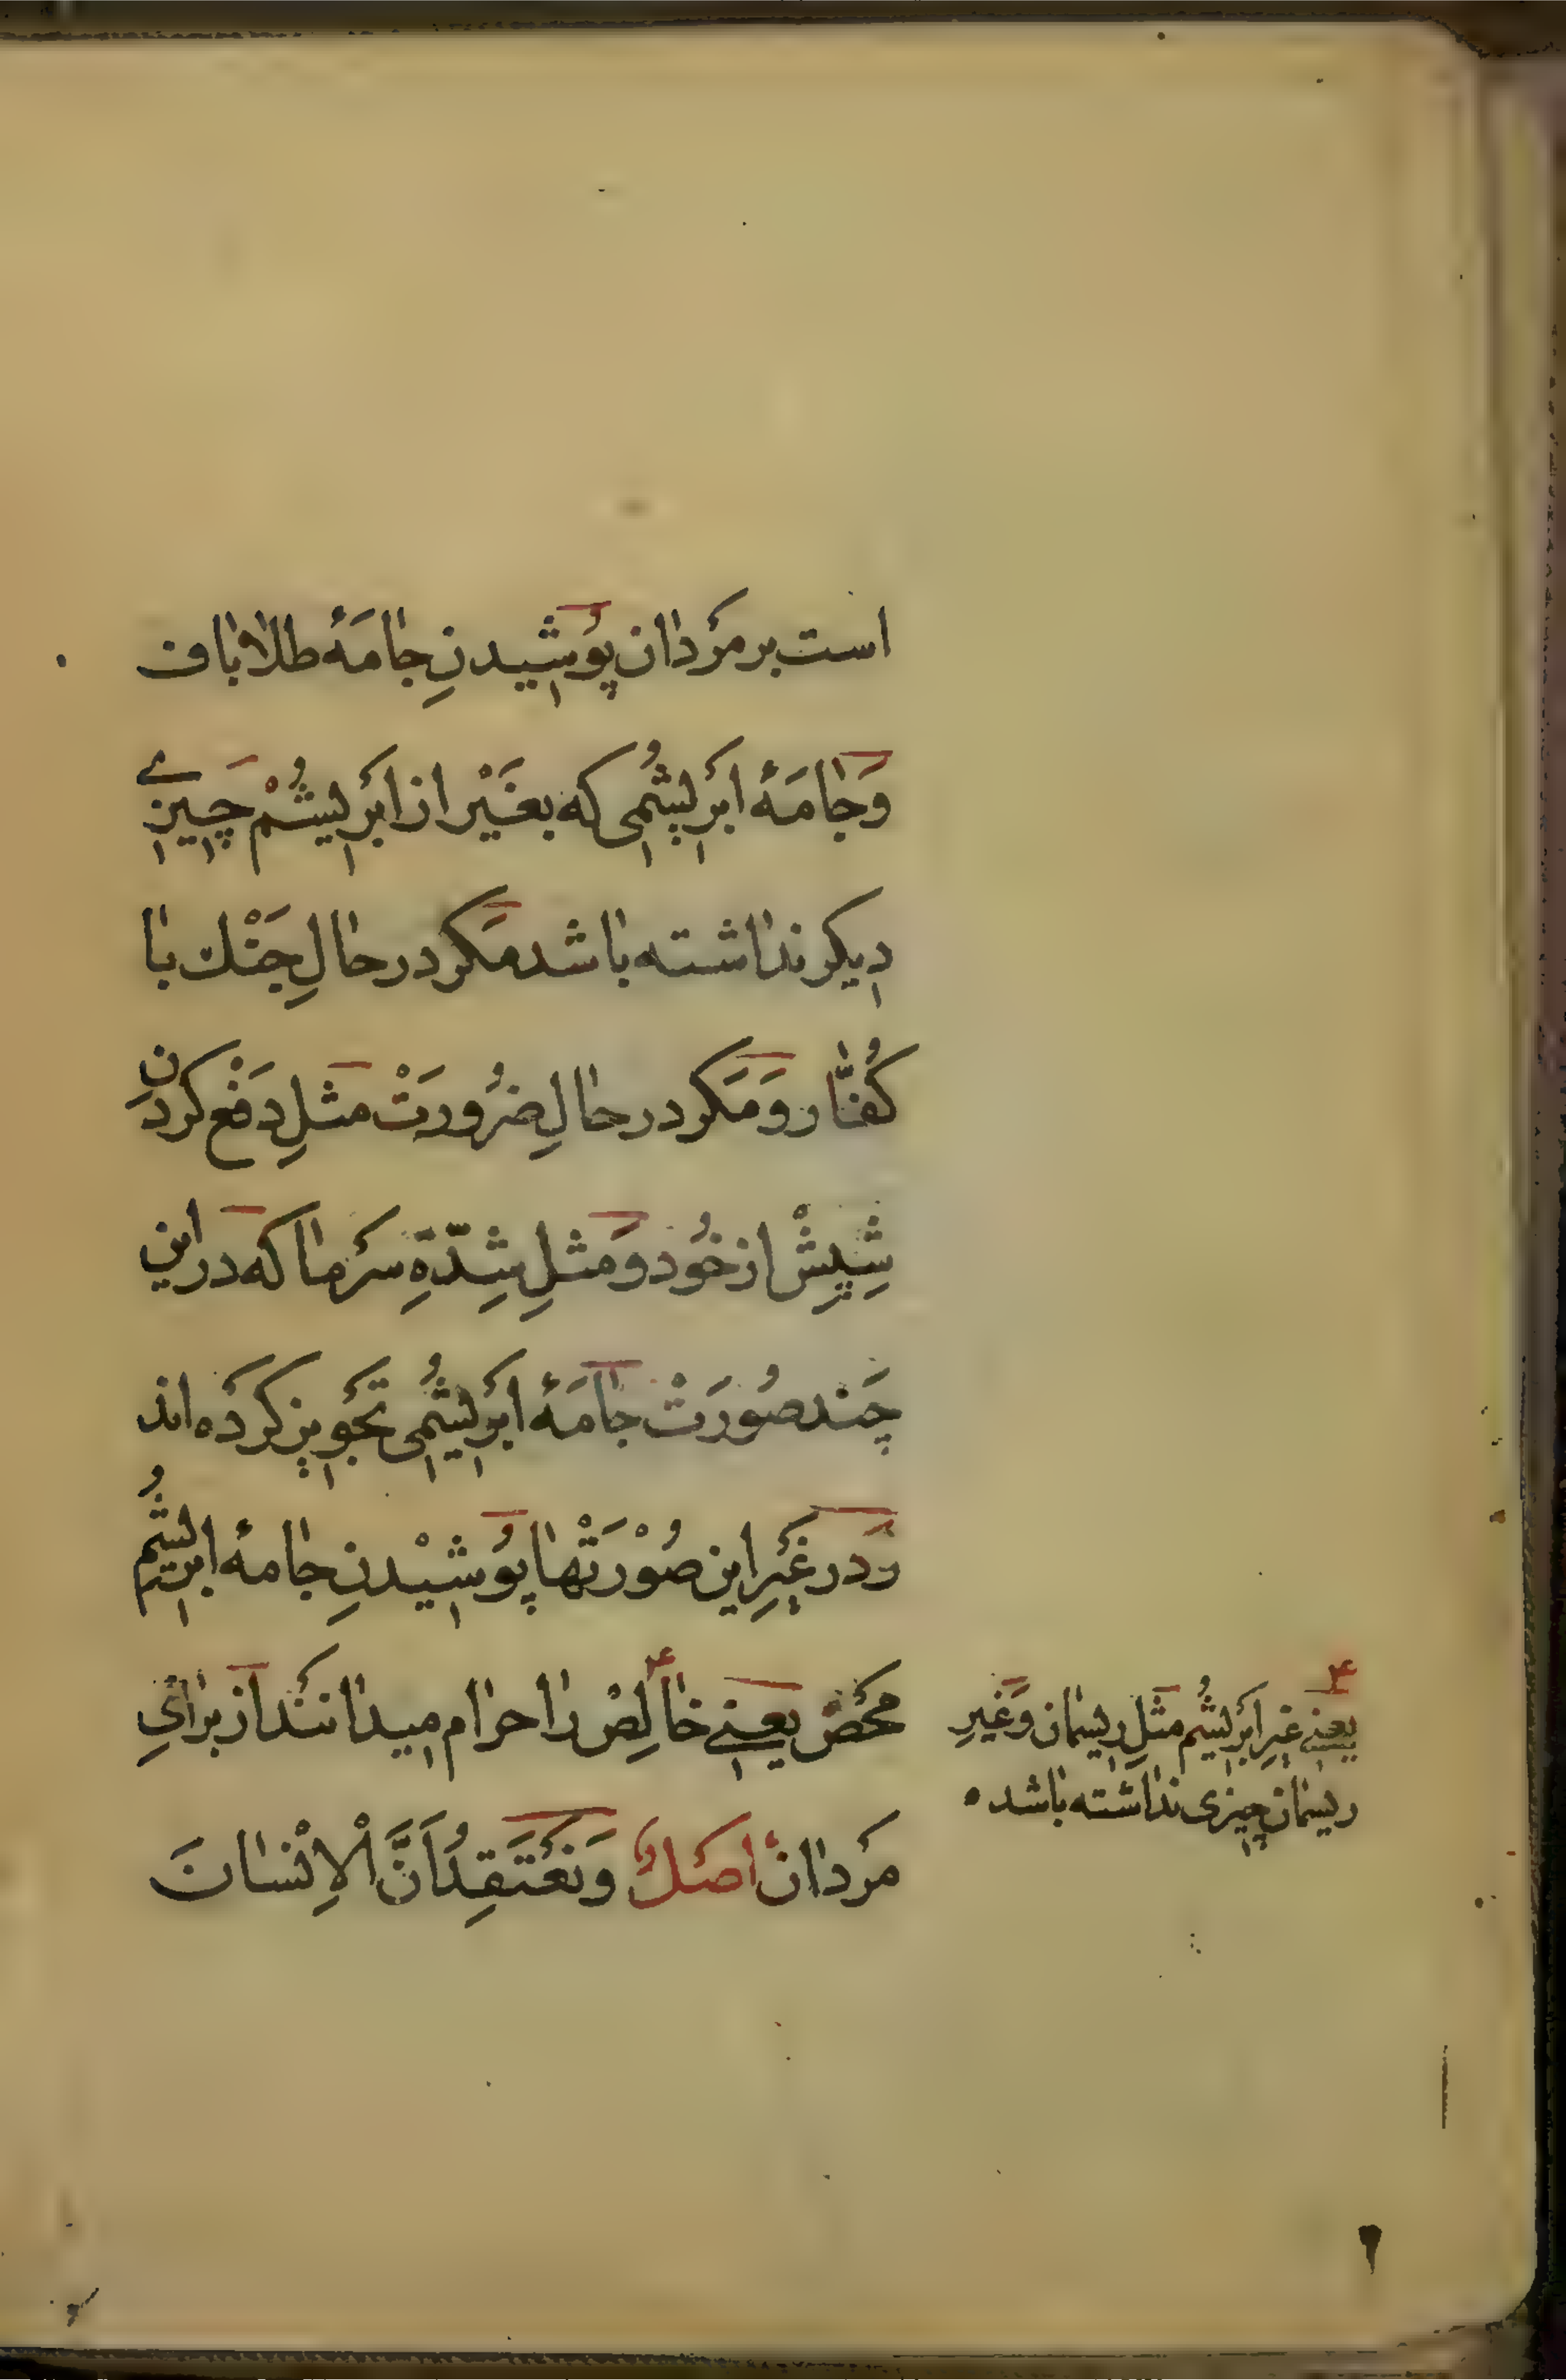 است بر مَرْدان پوُشیدنِ جامَهٔ طلا باف
وَجامَهٔ اَبْرِیشُمی که بغَیْر از اَبْرِیشُمْ چیزے
دیکر نداشته باشد مَکر در حالِ جَنْك با
کُفّار وَمَکر در حالِ ضُرورَتْ مَثلِ دَفْع کردنِ
شِپِشْ از خُود وَمثلِ شِدّةِ سَرْما که در این
چَند صُورَتْ جامَهٔ اَبْرِیشُمی تَجْویز کرْدَه‌اند
وَدر غَیْرِ این صُوْرَتْها پوُشیْدنِ جامهٔ ابریشُمِ
مَحْضْ یعنے خالِصْ را حرام میدانَنْد از برایِ
مَرْدان اَصْلٌ وَنَعْتَقِدُ اَنَّ الْاِنْسانَ
۴
یعنے غیرِ اَبْریشُم مَثلِ ریسمان وَغَیرِ
ریسمان چیزی نداشته باشد ه
۲